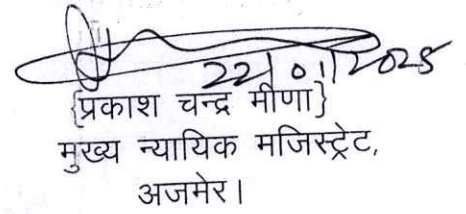 22/01/2025
{प्रकाश चन्द्र मीणा}
मुख्य न्यायिक मजिस्ट्रेट,
अजमेर।